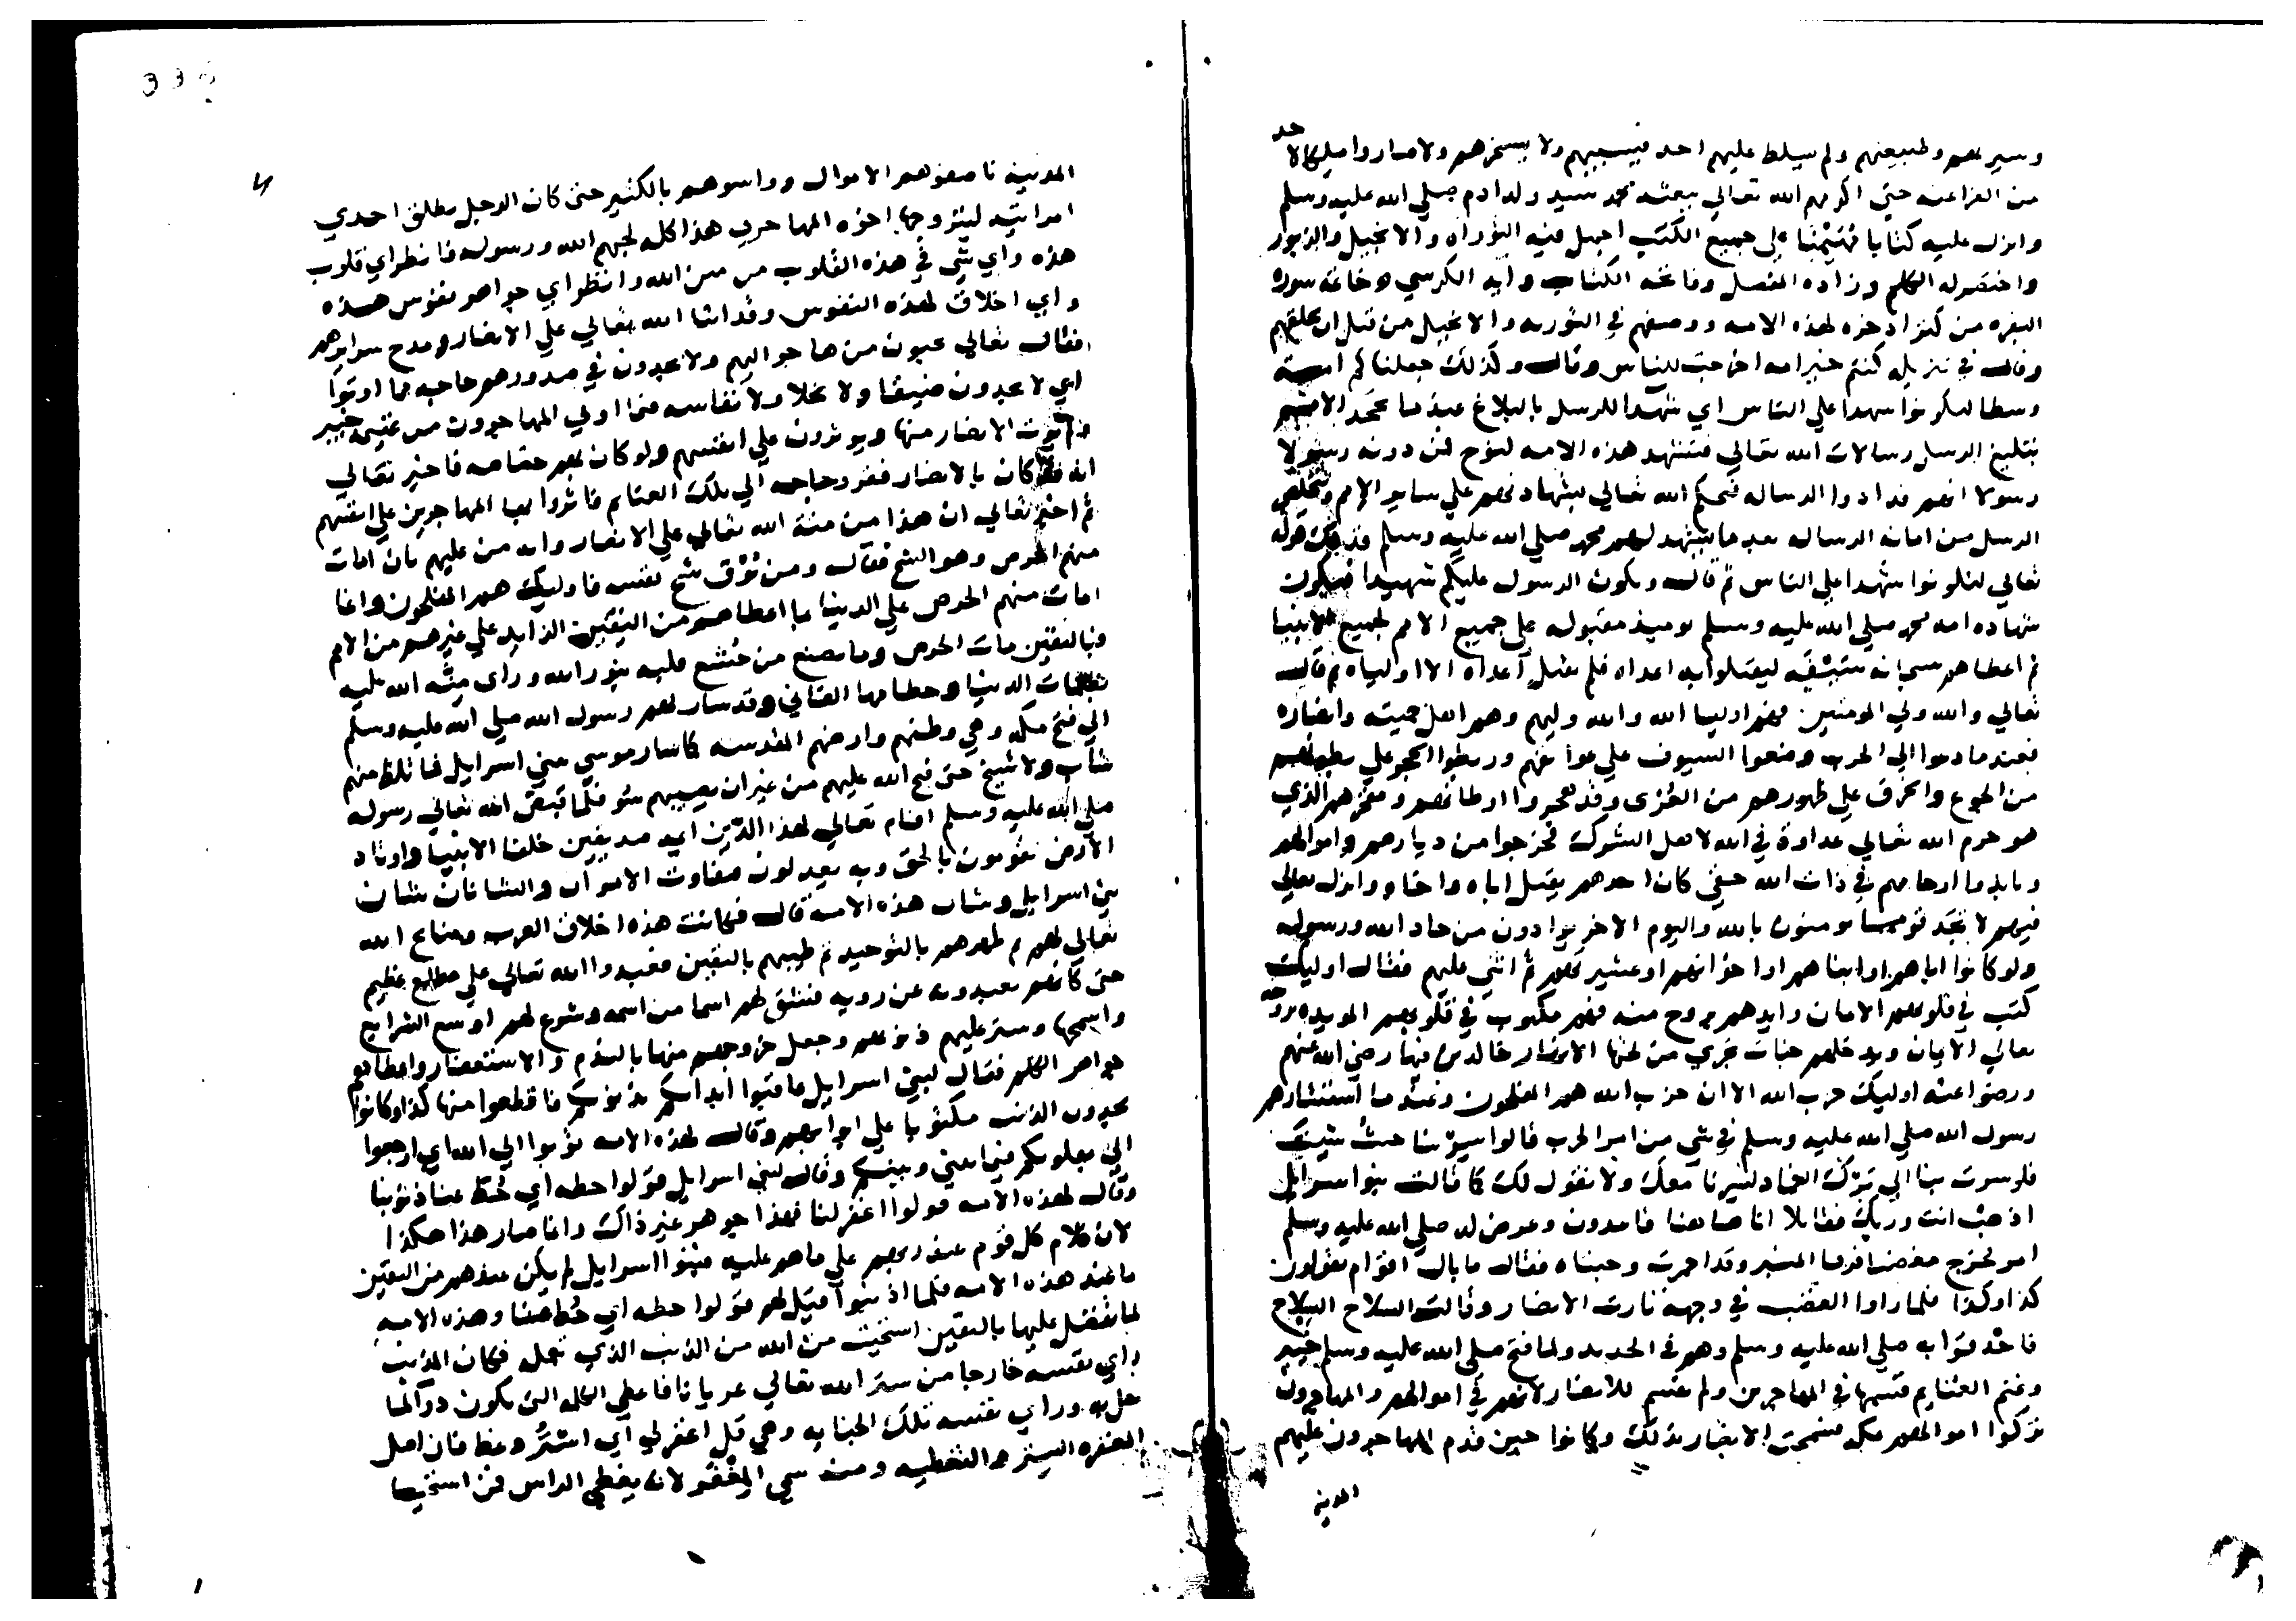 حد
وسيرتهم وطبيعتهم ولم يسلط عليهم احد فيسبيهم ولا يسخرهم ولا صاروا
من الفراعنه حتى اكرمهم الله تعالي ببعثه محمد سيد ولد ادم صلي الله عليه وسلم
وانزل عليه كتابا مهيمنا على جميع الكتب اجمل فيه التوراه والانجيل والزبور
واختصر له الكلم وزاده المفصل وفاتحه الكتاب وايه الكرسي وخاتمه سوره
البقره من كنز ادخره لهذه الامه ووصفهم في التوريه والانجيل من قبل ان يخلقهم
وقال في تنزيله كنتم خير امه اخرجت للناس وقال وكذلك جعلناكم امة
وسطا لتكونوا شهدا علي الناس اي شهدا للرسل بالبلاغ عندما تجحد الامم
بتبليغ الرسل رسالات الله تعالي فتشهد هذه الامه لنوح لمن دونه رسولا
رسولا انهم قد ادوا الرساله فيحكم الله تعالي بشهادتهم علي ساير الامم وتخلص
الرسل من امانه الرساله بعد ما يشهد لهم محمد صلي الله عليه وسلم فذلك قوله
تعالي لتكونوا شهدا علي الناس ثم قال ويكون الرسول عليكم شهيدا فيكون
شهاده امه محمد صلي الله عليه وسلم يوميذ مقبوله على جميع الامم لجميع الانبيا
ثم اعطاهم سبحانه سيفه ليقتلوا به اعداه فلم يقتل اعداه الا اولياه ثم قال
تعالي والله ولي المومنين فهم اوليا الله والله وليهم وهم اهل حميته وانصاره
فعندما دعوا الي الحرب وضعوا السيوف علي عواتقهم وربطوا الحجر على بطونهم
من الجوع والخرق على ظهورهم من العرى وقد هجروا اوطانهم ومفخرهم الذي
هو حرم الله تعالي عداوة في الله لاهل الشرك فخرجوا من ديارهم واموالهم
ونابذوا ارحامهم في ذات الله حتى كان احدهم يقتل اباه واخاه وانزل تعالى
فيهم لا تجد قوما يومنون بالله واليوم الاخر يوادون من حاد الله ورسوله
ولو كانوا اباهم او ابناهم او اخوانهم او عشيرتهم ثم اثني عليهم فقال اوليك
كتب في قلوبهم الايمان وايدهم بروح منه فهم مكتوب في قلوبهم المويده بروحه
تعالي الايمان ويدخلهم جنات تجري من تحتها الانهار خالدين فيها رضي الله عنهم
ورضوا عنه اوليك حزب الله الا ان حزب الله هم المفلحون وعندما استشارهم
رسول الله صلي الله عليه وسلم في شي من امر الحرب قالوا سير بنا حيث شيت
فلو سرت بنا الي برك الغماد لسرنا معك ولا نقول لك كما قالت بنوا اسرايل
اذهب انت وربك فقاتلا انا هاهنا قاعدون وعرض له صلي الله عليه وسلم
امر فخرج مغضبا فرقا المنبر وقد احمرت وجنتاه فقال ما بال اقوام يقولون
كذا وكذا فلما راوا الغضب في وجهه ثارت الانصار وقالت السلاح السلاح
فاحدقوا به صلي الله عليه وسلم وهم في الحديد ولما فتح صلي الله عليه وسلم خيبر
وغنم الغنايم قسمها في المهاجرين ولم يقسم للانصار لانهم في اموالهم والمهاجرون
تركوا اموالهم بمكه فسمحت الانصار بذلك وكانوا حين قدم المهاجرون عليهم
المدينه
المدينه ناصفوهم الاموال وواسوهم بالكثير حتى كان الرجل يطلق احدي
امراتيه ليتزوجها اخوه المهاجري هذا كله لحبهم الله ورسوله فانظر اي قلوب
هذه واي شي في هذه القلوب من منن الله وانظر اي جواهر نفوس هذه
واي اخلاق لهذه النفوس وقد اثنا الله تعالي علي الانصار ومدح سرايرهم
فقال تعالي يحبون من هاجر اليهم ولا يجدون في صدورهم حاجه مما اوتوا
اي لا يجدون ضيقا ولا بخلا ولا نفاسه فيما اوتي المهاجرون من غنيمه خيبر
الانصار منها ويوثرون علي انفسهم ولو كان بهم خصاصه فاخبر تعالي
انه قد كان بالانصار فقر وحاجه الي تلك الغنايم فاثروا بها المهاجرين علي انفسهم
ثم اخبر تعالي ان هذا من منة الله تعالي علي الانصار وانه من عليهم بان امات
منهم الحرص وهو الشح فقال ومن يوق شح نفسه فاوليك هم المفلحون وانما
امات منهم الحرص علي الدنيا بما اعطاهم من اليقين الزايد علي غيرهم من الامم
وباليقين مات الحرص وما يصنع من خشع قلبه بنور الله وراى منة الله عليه
الدنيا وحطامها الفاني وقد سار بهم رسول الله صلي الله عليه وسلم
الي فتح مكه وهي وطنهم وارضهم المقدسه كما سار موسي ببني اسرايل فما تلكا منهم
شاب ولا شيخ حتى فتح الله عليهم من غير ان يصيبهم سو فلما قبض الله تعالي رسوله
صلي الله عليه وسلم اقام تعالي لهذا الدين ايمه صديقين خلفا الانبيا واوتاد
الارض يقومون بالحق وبه يعدلون فتفاوت الامران والشانان شان
بني اسرايل وشان هذه الامه قال فكانت هذه اخلاق العرب وصنايع الله
تعالي لهم ثم طهرهم بالتوحيد ثم طيبهم باليقين فعبدوا الله تعالي علي مطالع عظيم
حتى كانهم يعبدونه عن رويه فشق لهم اسما من اسمه وشرع لهم اوسع الشرايع
واسمحها وستر عليهم ذنوبهم وجعل خروجهم منها بالندم والاستغفار واعطاهم
جواهر الكلم فقال لبني اسرايل عاقبوا ابدانكم بذنوبكم فاقطعوا منها كذا وكانوا
يجدون الذنب مكتوبا علي ابوابهم وقال لهذه الامه توبوا الي الله اي ارجعوا
الي بقلوبكم فيما بيني وبينكم وقال لبني اسرايل قولوا حطه اي حُط عنا ذنوبنا
وقال لهذه الامه قولوا اغفر لنا فهذا جوهر غير ذاك وانما صار هذا هكذا
لان كلام كل قوم عند ربهم علي ما هم عليه فبنوا اسرايل لم يكن عندهم من اليقين
ما عند هذه الامه فلما اذنبوا قيل لهم قولوا حطه اي حُط عنا وهذه الامه
لما تفضل عليها باليقين استحيت من الله من الذنب الذي تعمله فكان المذنب
راي نفسه خارجا من ستر الله تعالي عريانا فاعطي الكلمه التي تكون دوا لما
حل به وراي نفسه تلك الجنايه وهي قل اغفر لي اي استر وغط فان اصل
الغفره الستر والتغطيه ومنه سمي المغفر لانه يغطي الراس فمن استحيا